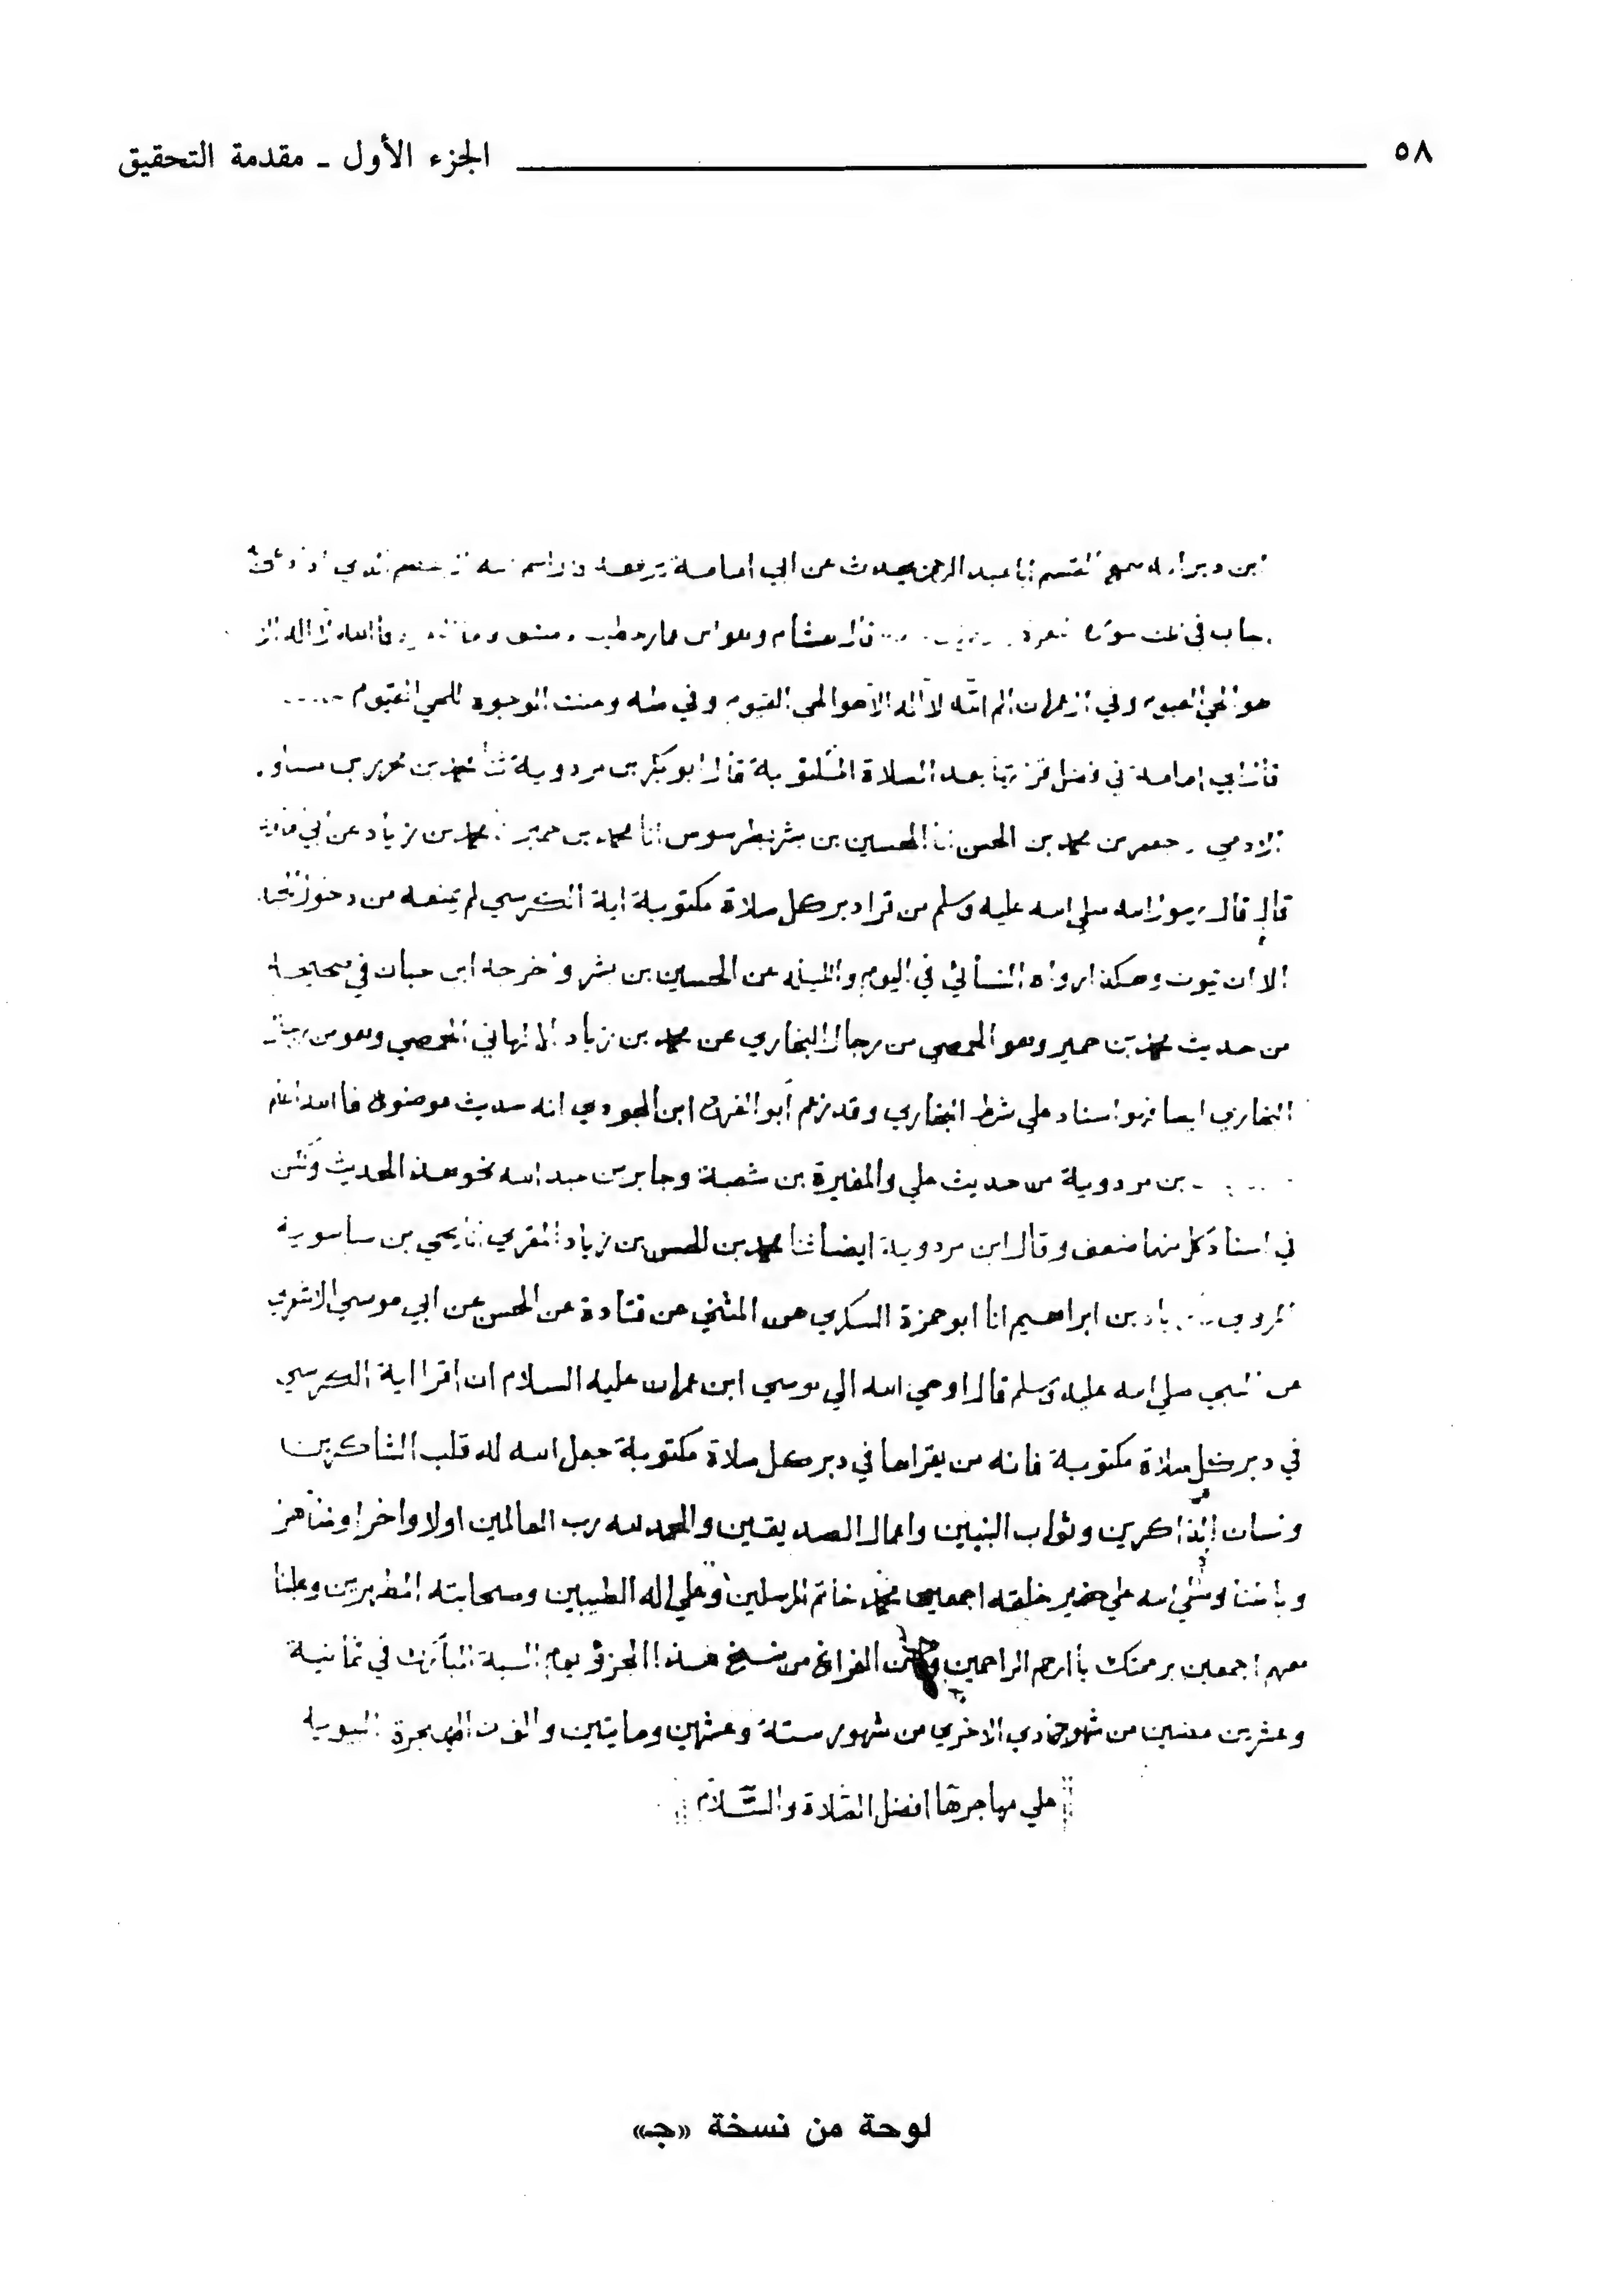 ٥٨ الجزء الأول - مقدمة التحقيق
ابن وبر انه سمع القسم ابا عبد الرحمن يحدث عن ابي امامة يرفعه اسم الله الذي اذا دعي
اجاب في ثلث سورة البقرة قال هشام وهو ابن عمار خطيب دمشق الله لا اله الا
هو الحي القيوم وفي ال عمران الم الله لا اله الا هو الحي القيوم وفي طه وعنت الوجوه للحي القيوم
ابي امامة في فضل قرايتها بعد الصلاة المكتوبة قال ابو بكر بن مردوية ثنا محمد بن محرز بن مساور
الادمي جعفر بن محمد بن الحسن انا الحسين بن بشر بطرسوس انا محمد بن حمير انا محمد بن زياد عن ابي امامة
قال قال رسول الله صلي الله عليه وسلم من قرا دبر كل صلاة مكتوبة اية الكرسي لم يمنعه من دخول الجنة
الا ان يموت وهكذا رواه النسائي في اليوم والليلة عن الحسين بن بشر واخرجه ابن حبان في صحيحه
من حديث محمد بن حمير وهو الحمصي من رجال البخاري عن محمد بن زياد الالهاني الحمصي وهو من رجال
البخاري ايضا فهو اسناد علي شرط البخاري وقد زعم أبو الفرج ابن الجودي انه حديث موضوع فاالله اعلم
بن مردوية من حديث علي والمغيرة بن شعبة وجابر بن عبد الله نحو هذ الحديث ولكن
في اسناد كل منها ضعف وقال ابن مردوية ايضا ثنا محمد بن الحسن بن زياد المقري انا يحيي بن
المروي زياد بن ابراهيم انا ابو حمزة السكري عن المثني عن قتادة عن الحسن عن ابي موسي الاشعري
عن النبي صلي الله عليه وسلم قال اوحي الله الي موسي ابن عمران عليه السلام ان اقرا اية الكرسي
في دبر كل صلاة مكتوبة فانه من يقراها في دبر كل صلاة مكتوبة جعل الله له قلب الشاكرين
ولسان الذاكرين وثواب النبيين واعمال الصديقين والحمد لله رب العالمين اولا واخرا وظاهر
وباطنا وصلي الله علي خير خلقه اجمعين محمد خاتم المرسلين وعلي اله الطيبين وصحابته المطهرين وعلينا
معهم اجمعين برحمتك يا ارحم الراحمين وكان الفراغ من نسخ هذ الجزؤ يوم السبة المبارك في ثمانية
وعشرين مضين من شهور جمادي الاخري من شهور ستة وعشرين ومايتين والف من الهجرة النبوية
علي مهاجرها افضل الصلاة والسلام
لوحة من نسخة «جـ»